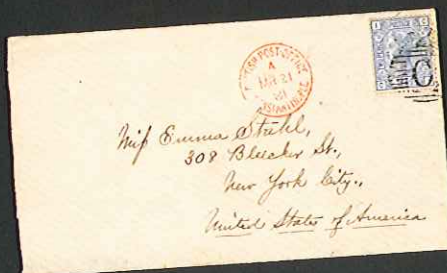 BRITISH POST-OFFICE
A
MR 21
81
CONSTANTINOPLE
C
Miss Emma Stahl,
308 Bleecker St.,
New York City.,
United States of America